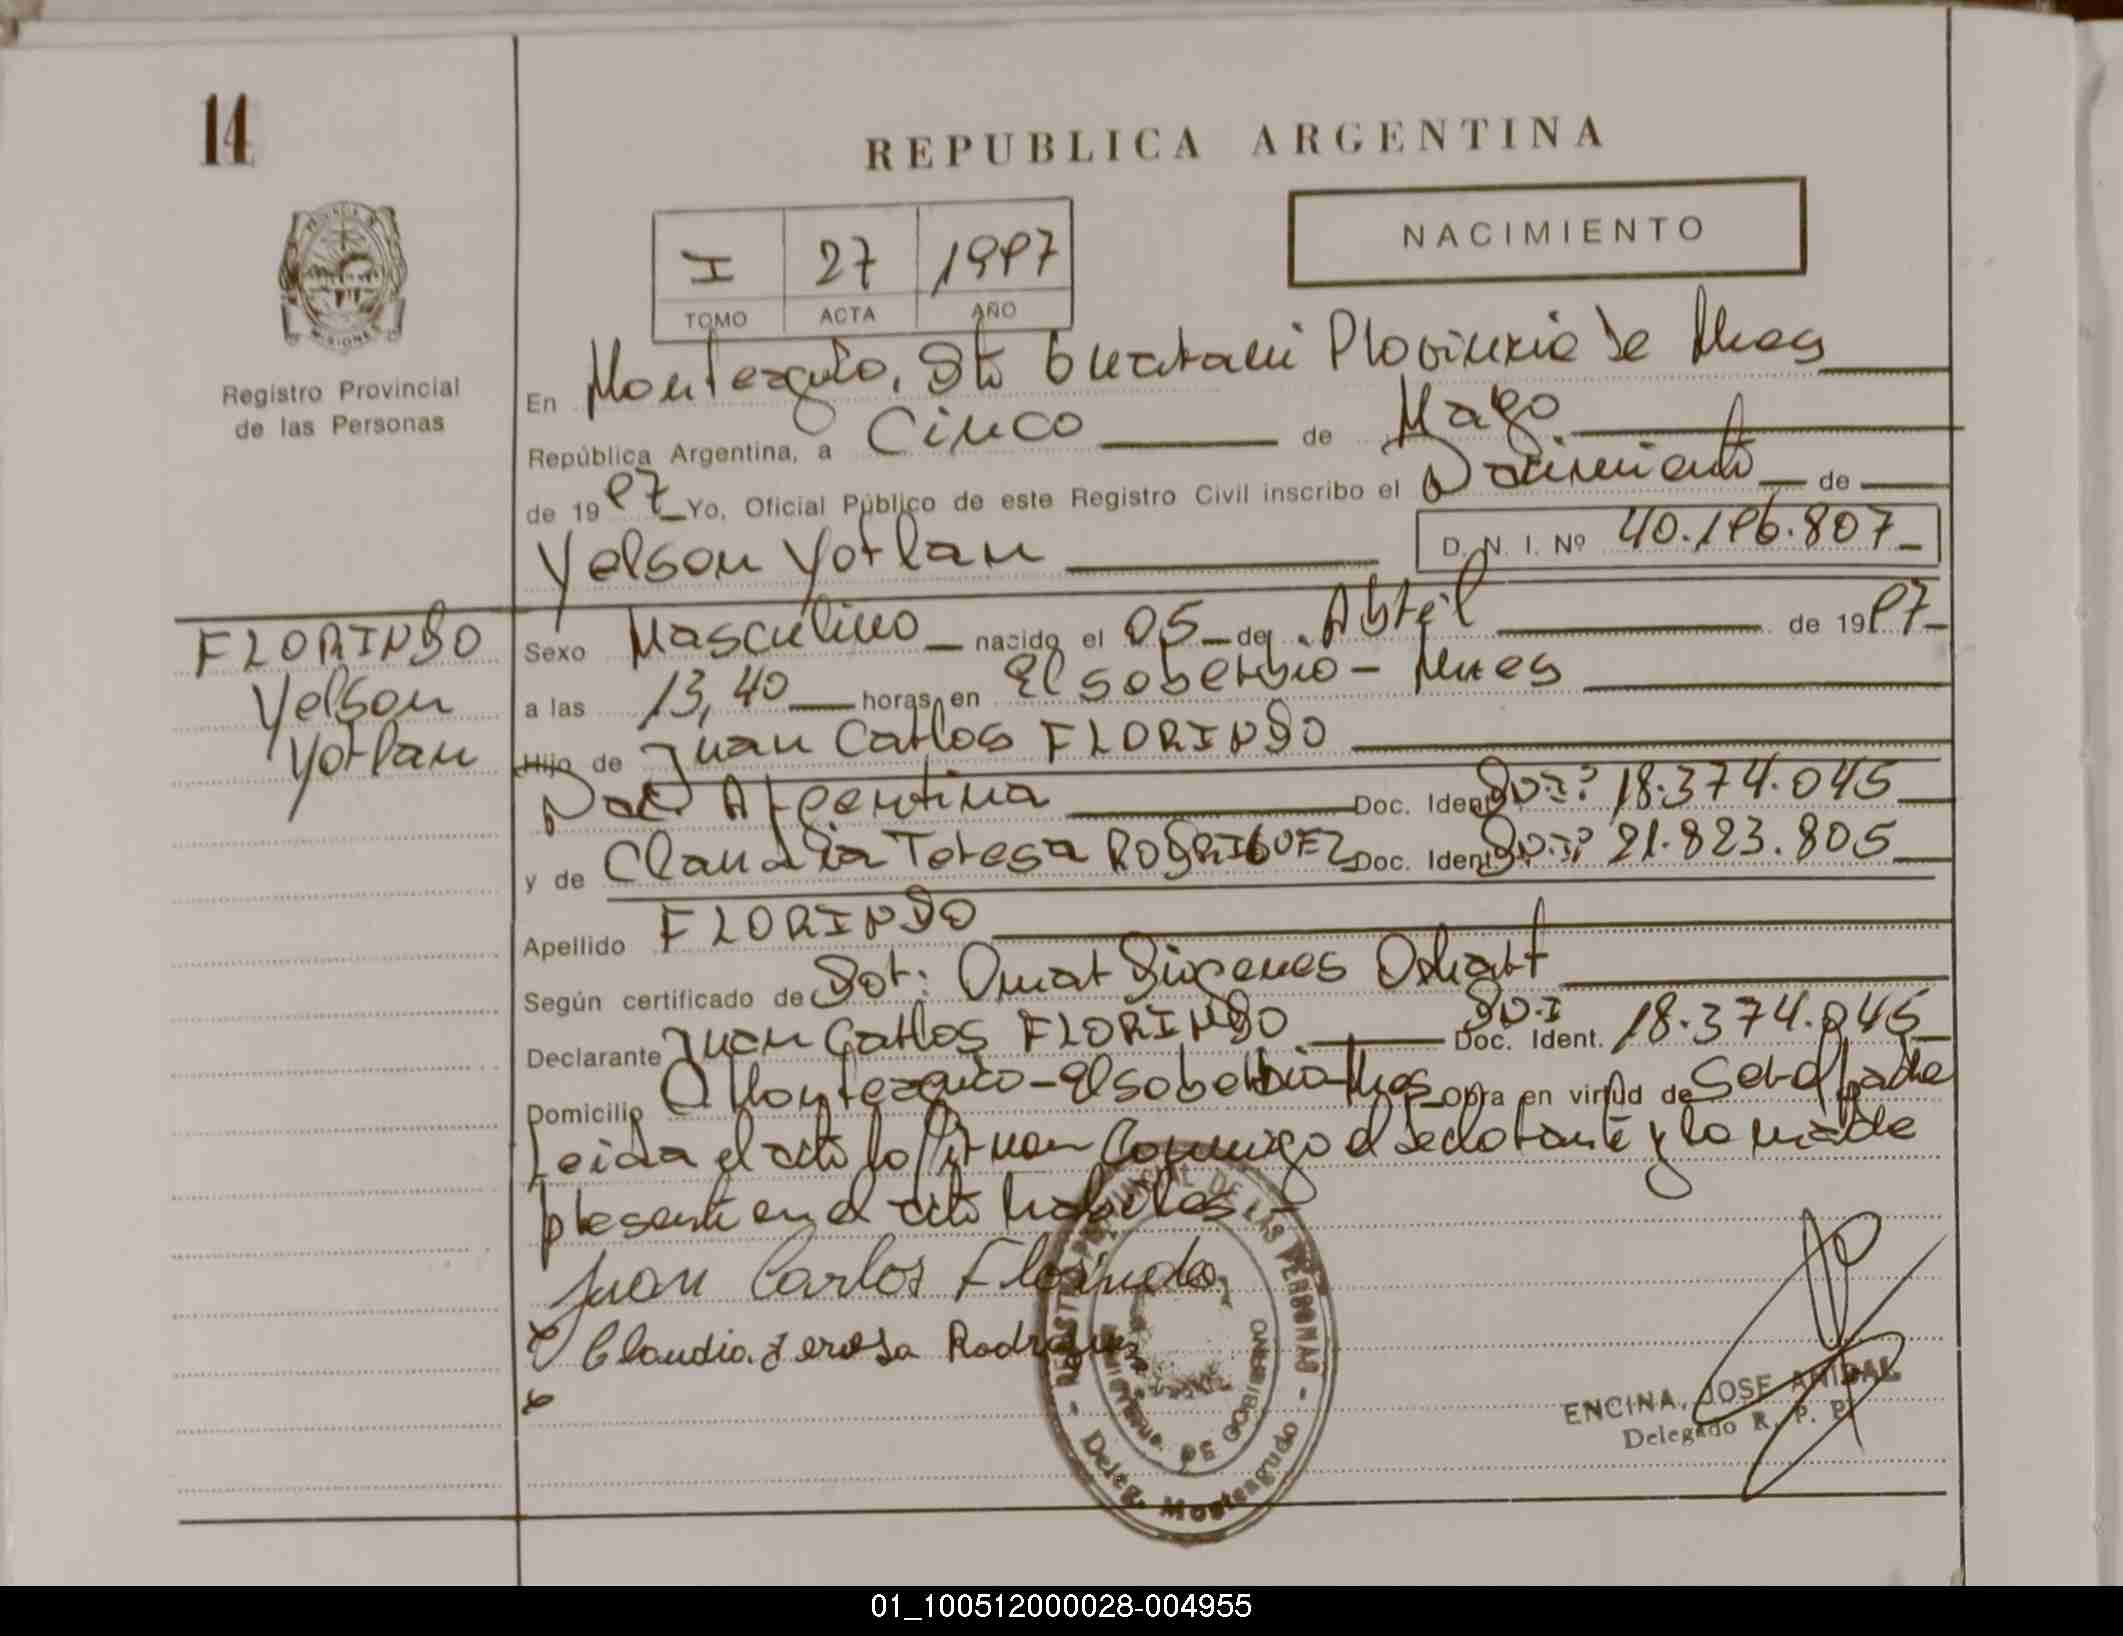 14
REPUBLICA ARGENTINA
NACIMIENTO
I 27 1997
TOMO ACTA AÑO
Registro Provincial
de las Personas
En Monteagudo, Dto Guarani Provincia de Mnes
República Argentina, a Cinco de Mayo
de 1997 Yo, Oficial Público de este Registro Civil inscribo el Nacimiento de
Yelson Yorlan D. N. I. Nº 40.196.807
FLORINDO
Yelson
Yorlan
Sexo Masculino nacido el 05 de Abril de 1997
a las 13,40 horas en El soberbio - Mnes
Hijo de Juan Carlos FLORINDO
Nac. Argentina Doc. Ident. D.N.I: 18.374.045
y de Claudia Teresa RODRIGUEZ Doc. Ident. D.N.I: 21.823.805
Apellido FLORINDO
Según certificado de Dor: Omar Diogenes
Declarante Juan Carlos FLORINDO D.N.I Doc. Ident. 18.374.045
Domicilio Monteagudo - El soberbio - Mnes Obra en virtud de Ser el padre
Leida el acta la firman Conmigo el declarante y la madre
presente en el acto
Juan Carlos Florindo
Claudia Teresa Rodriguez
REGISTRO PROVINCIAL DE LAS PERSONAS
MINISTERIO DE GOBIERNO
- Deleg. Monteagudo -
ENCINA, JOSE ANIBAL
Delegado R. P. P.
01_100512000028-004955